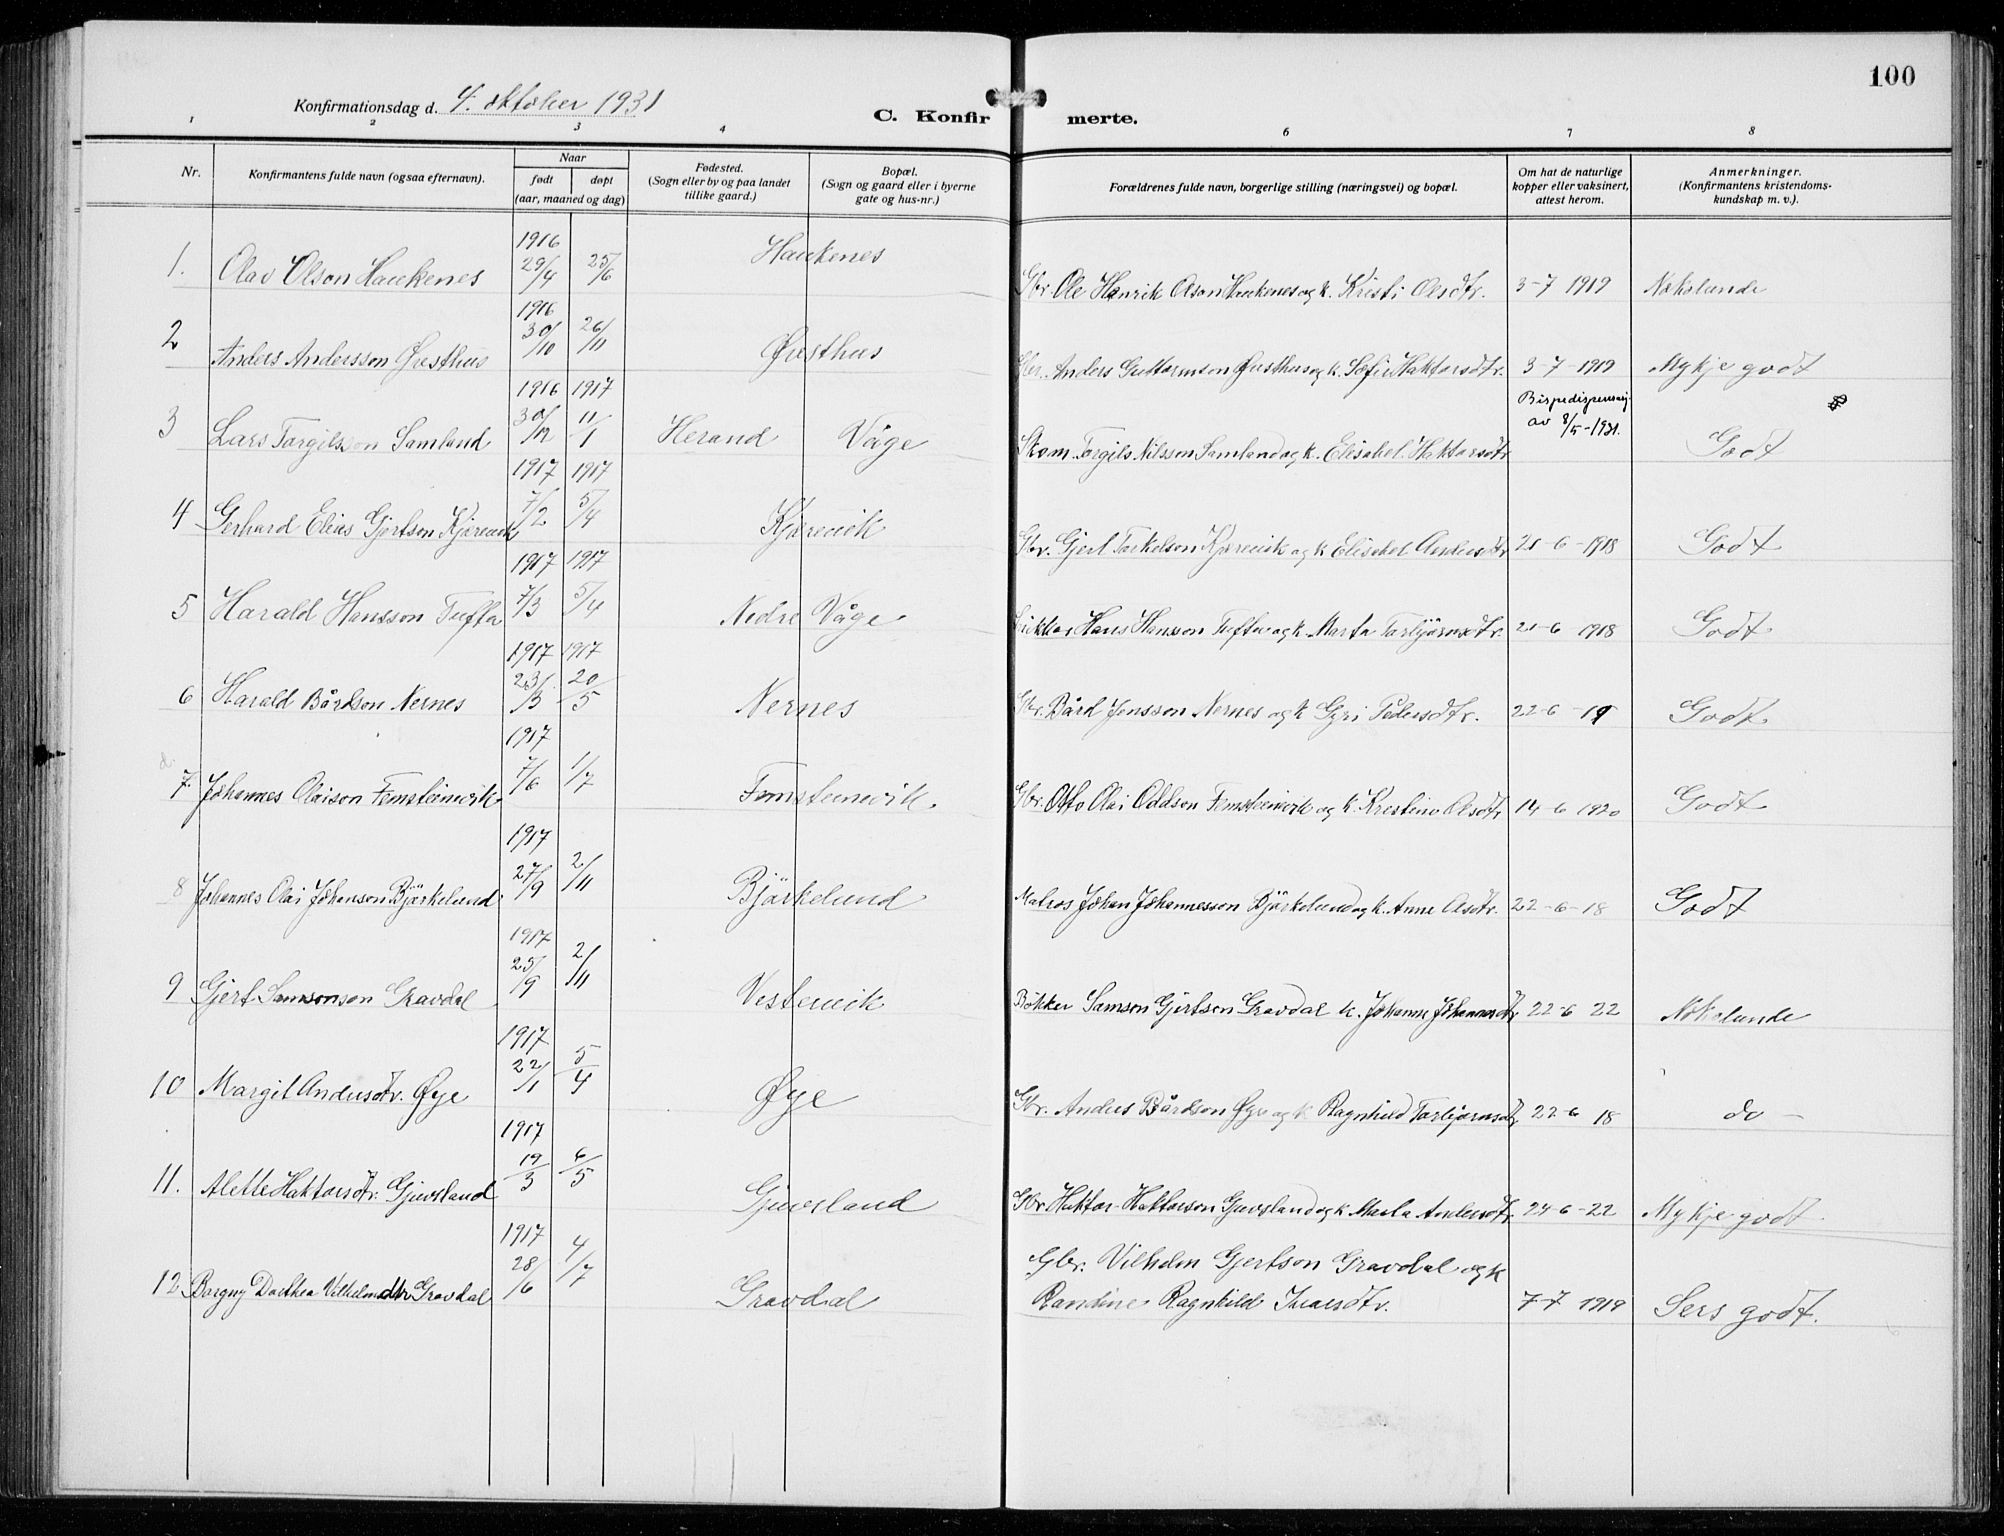 100
Konfirmationsdag d. 4. oktober 1931
C. Konfirmerte.
1 2 3 4 6 7 8
Nr.
Konfirmantens fulde navn (ogsaa efternavn).
Naar
født
døpt
(aar, maaned og dag)
Fødested.
(Sogn eller by og paa landet
tillike gaard.)
Bopæl.
(Sogn og gaard eller i byerne
gate og hus-nr.)
Forældrenes fulde navn, borgerlige stilling (næringsvei) og bopæl.
Om hat de naturlige
kopper eller vaksinert,
attest herom.
Anmerkninger.
(Konfirmantens kristendoms-
kundskap m. v.).
1916
1. Olav Olson Haukenes 29/4 25/6 Haukenes Gbr. Ole Henrik Olson Haukenes og k. Kristi Olsdtr. 3-7 1919 Nokolunde
1916
2 Anders Andersson Øvsthus 30/10 26/11 Øvsthus Gbr. Anders Guttormson Øvsthus og k. Sofie Haktorsdtr. 3-7-1919 Mykje godt
1916 1917
Bispedispensasj.
av 8/5-1931.
3 Lars Torgilsson Samland 30/12 11/1 Herand Våge Skom. Torgils Nilsson Samland og k. Elisabet Haktorsdtr Godt
1917 1917
4 Gerhard Elias Gjertson Kjærevik 7/2 5/4 Kjærevik Gbr. Gjert Torkelson Kjærevik og k Elisabet Andersdtr 21-6-1918 Godt
1917 1917
5 Harald Hansson Tufta 7/3 5/4 Nedre Våge Hans Hansson Tufta og k. Marta Torbjørnsdtr. 21-6 1918 Godt
1917 1917
6 Harald Bårdson Nernes 23/3 20/5 Nernes Gbr. Bård Jonsson Nernes og k Gyri Pedersdtr. 22-6-19 Godt
1917
7. Johannes Olaison Femsteinevik 7/6 1/7 Femsteinevik. Gbr. Otto Olai Oddson Femsteinevik og k. Kristine Olsdtr 14-6 1920 Godt
1917
8 Johannes Olai Johanson Bjørkelund 27/9 2/11 Bjørkelund Matros Johan Johannesson Bjørkelund og k. Anne Olsdtr. 22-6-18 Godt
1917
9 Gjert Samsonson Gravdal 25/9 2/11 Vestervik Bøkker Samson Gjertson Gravdal k. Johanne Johannesdtr 22-6 22 Nokolunde
1917
10 Margit Andersdtr. Øye 22/1 5/4 Øye Gbr. Anders Bårdson Øye og k Ragnhild Torbjørnsdtr 22-6 18 do -
1917
11. Alette Haktorsdtr. Gjuvsland 19/3 6/5 Gjuvsland Gbr Haktor Haktorson Gjuvsland og k Marta Andersdtr 24-6-22 Mykje godt.
1917
Gbr. Vilhelm Gjertson Gravdal og k
12 Borgny Dorthea Vilhelmsdtr Gravdal 28/6 4/7 Gravdal Randine Ragnhild Ivarsdtr. 7-7 1919 Sers godt.